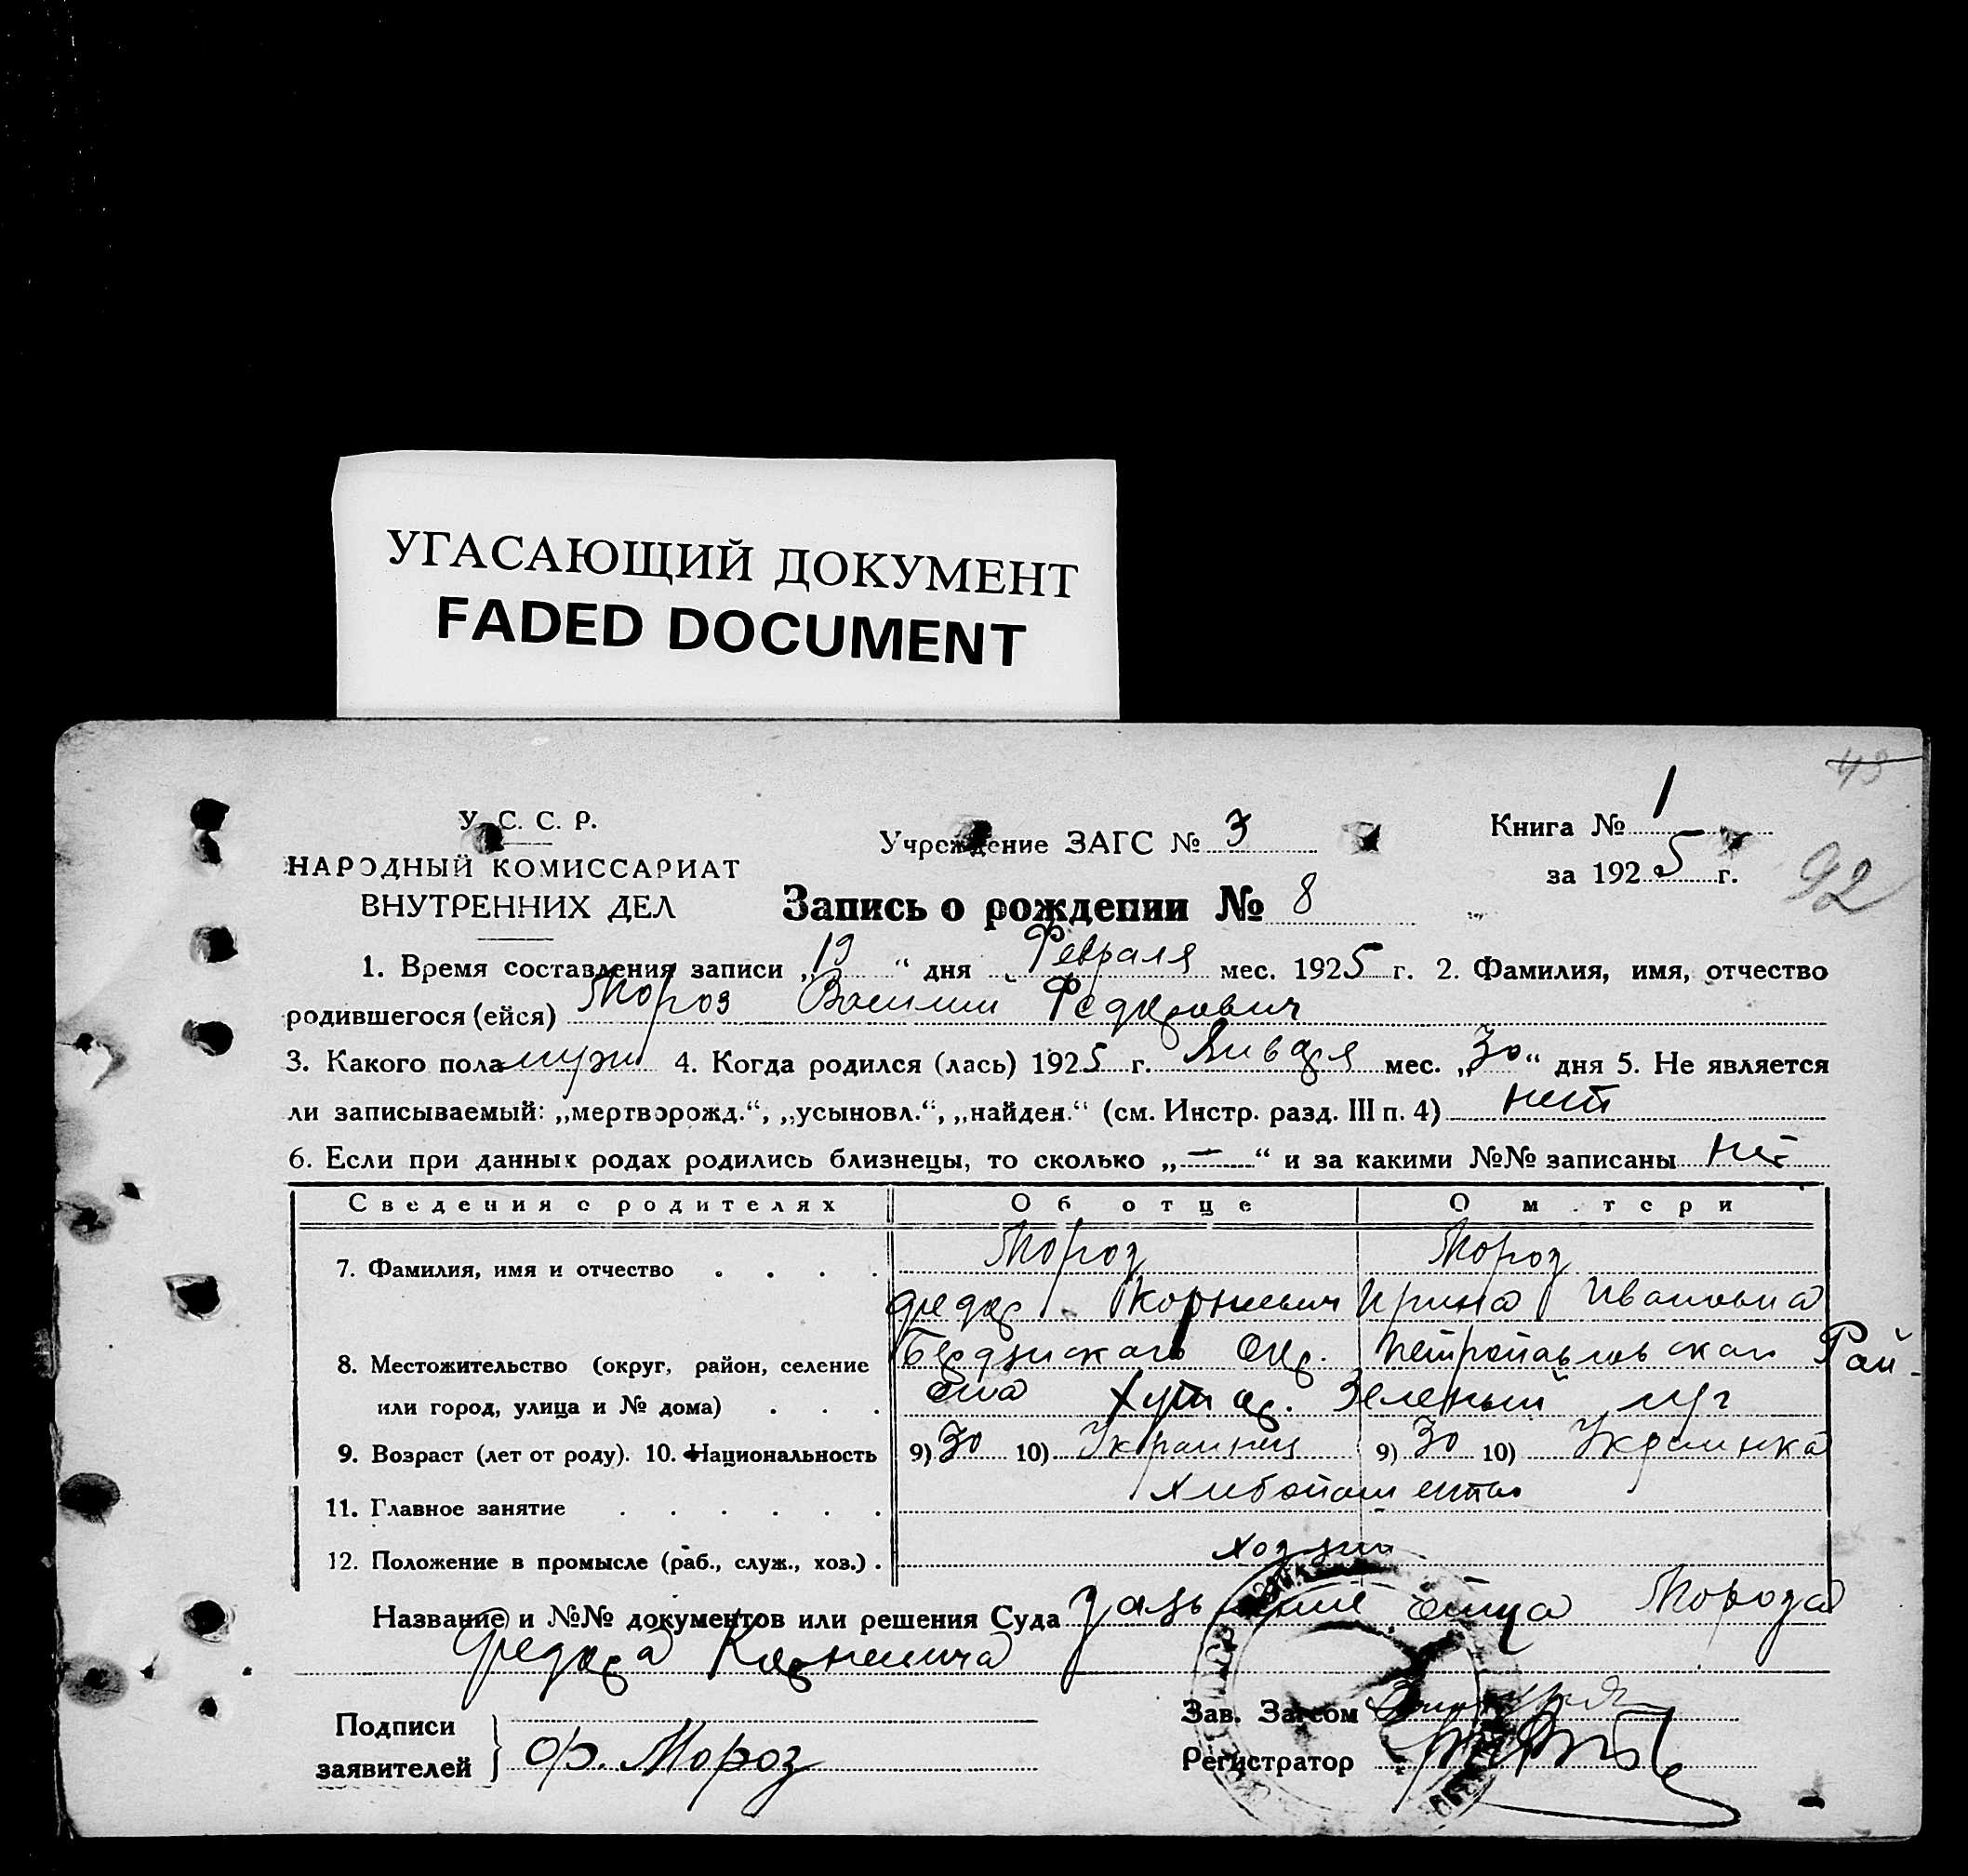 УГАСАЮЩИЙ ДОКУМЕНТ
FADED DOCUMENT
48
У. С. С. Р.
НАРОДНЫЙ КОМИССАРИАТ
ВНУТРЕННИХ ДЕЛ
Учреждение ЗАГС № 3
Книга № 1
за 1925 г.
92
Запись о рождении № 8
1. Время составления записи „19“ дня Февраля мес. 1925 г. 2. Фамилия, имя, отчество
родившегося (ейся) Мороз Василий Федорович
3. Какого пола муж 4. Когда родился (лась) 1925 г. Января мес. „30“ дня 5. Не является
ли записываемый: „мертворожд.“, „усыновл.“, „найден.“ (см. Инстр. разд. III п. 4) нет
6. Если при данных родах родились близнецы, то сколько „—“ и за какими №№ записаны нет
Сведения о родителях Об отце О матери
7. Фамилия, имя и отчество . . . . Мороз Мороз
Федор Корниевич Ирина Ивановна
8. Местожительство (округ, район, селение Окр. Петропавловскаго Рай-
или город, улица и № дома) . . . она Хутор. Зеленый луг
9. Возраст (лет от роду). 10. Национальность 9) 30 10) Украинец 9) 30 10) Украинка
11. Главное занятие . . . . . .
12. Положение в промысле (раб., служ., хоз.) . хозяин
Название и №№ документов или решения Суда отца Мороза
Федора Корниевича
Подписи
заявителей } Ф. Мороз
Зав. Загсом
Регистратор